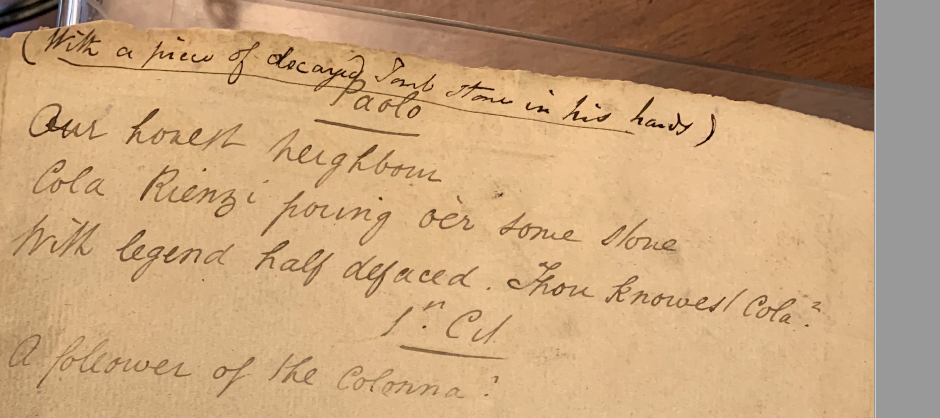 (With a piece of decayed Tomb stone in his hands)
Paolo
Our honest neighbour
Cola Rienzi poring oèr some stone
With legend half defaced. Thou knowest Cola?
1n. Cit
A follower of the Colonna?